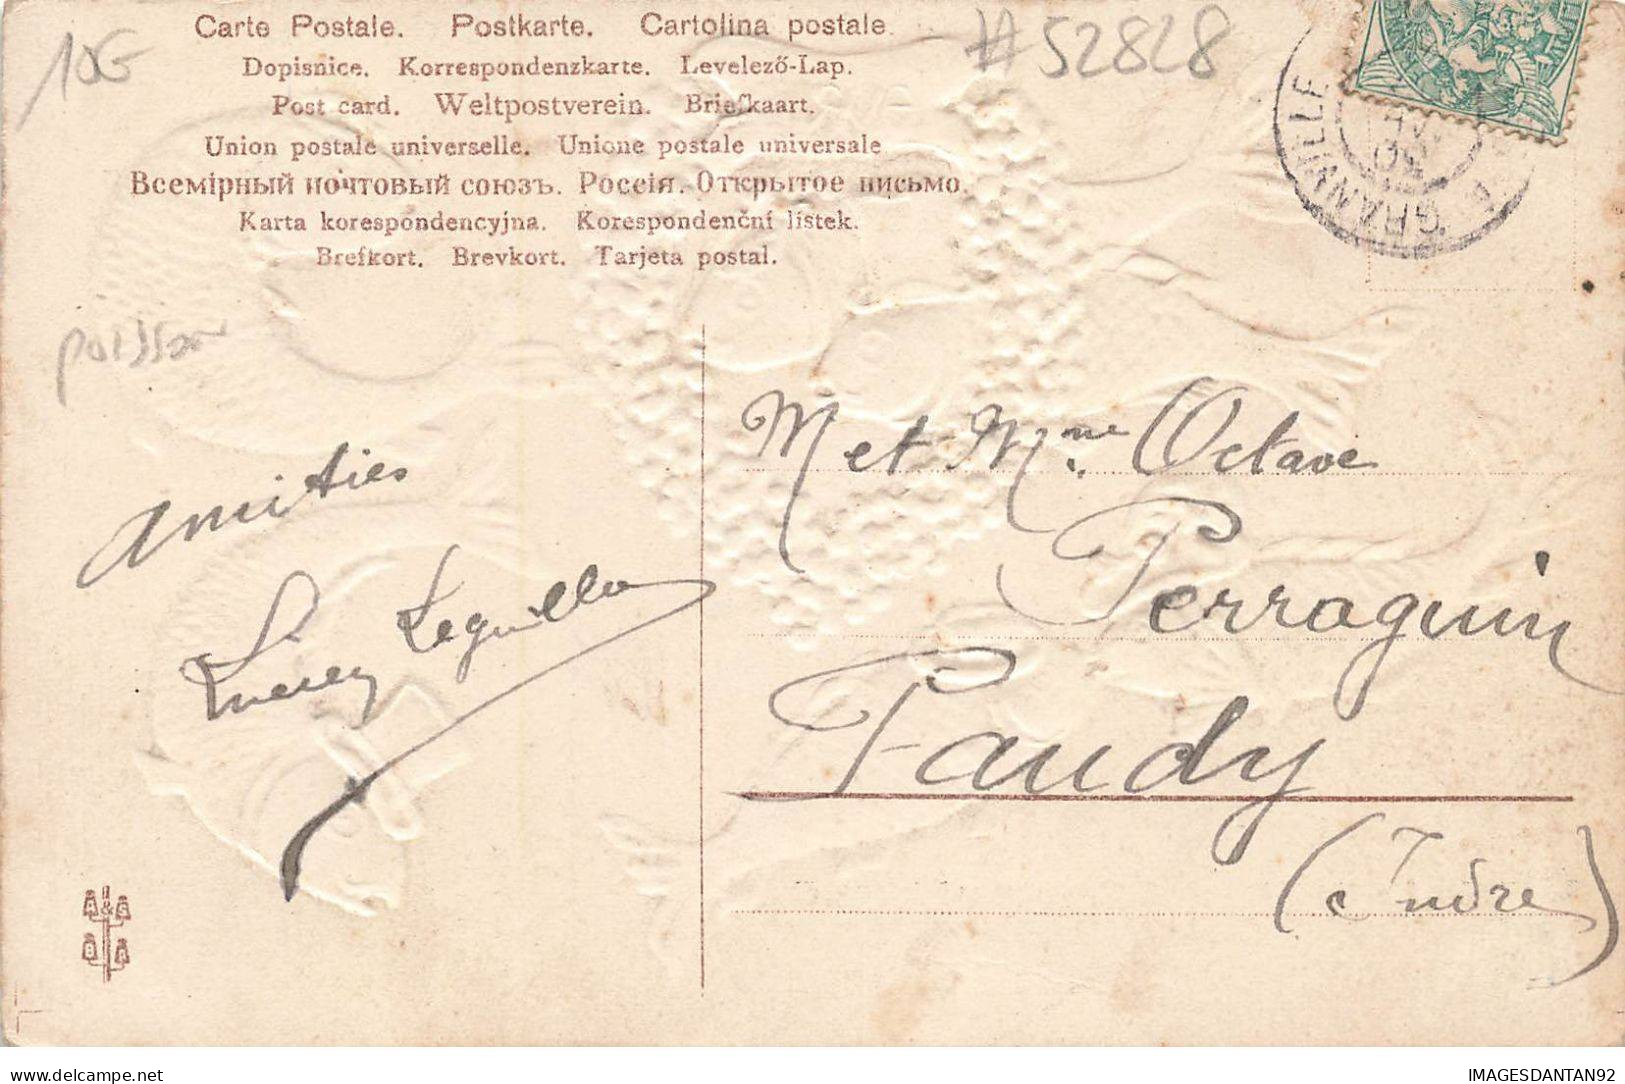 Carte Postale. Postkarte. Cartolina postale.
Dopisnice. Korrespondenzkarte. Levelező-Lap.
Post card. Weltpostverein. Briefkaart.
Union postale universelle. Unione postale universale
Всемірный почтовый союзъ. Россія. Открытое письмо.
Karta korespondencyjna. Korespondenční lístek.
Brefkort. Brevkort. Tarjeta postal.
10G
#52828
GRANVILLE
poisson
amitiés
M et Mme Octave
Perraguin
Paudy
(Indre)
IMAGESDANTAN92